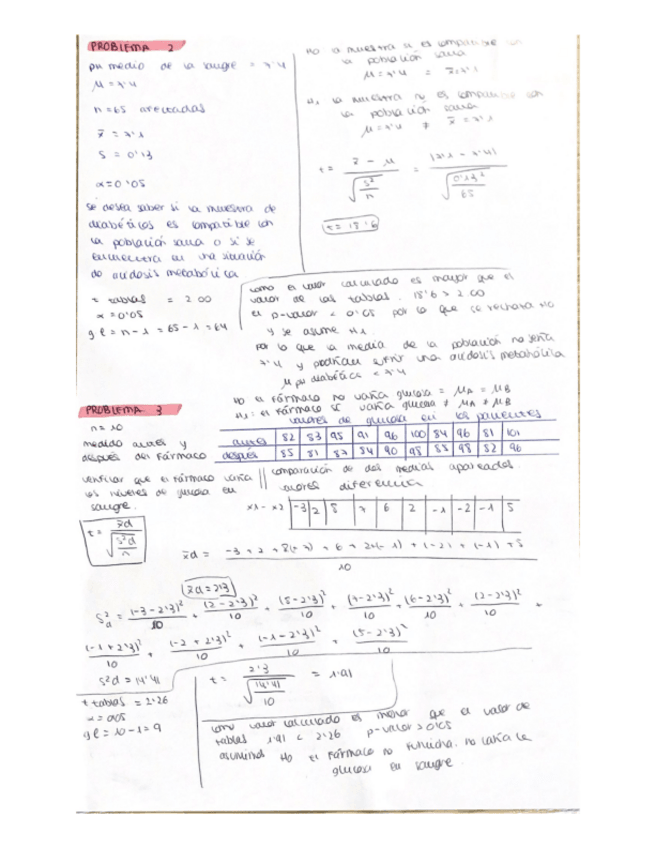 PROBLEMA 2
pH medio de la sangre = 7'4
μ = 7'4
n = 65 afectadas
x̄ = 7'1
S = 0'13
α = 0'05
se desea saber si la muestra de
diabéticos es compatible con
la población sana o si se
encuentra en una situación
de acidosis metabólica
t tablas = 2.00
α = 0'05
gl = n - 1 = 65 - 1 = 64
H0 la muestra si es compatible con
la población sana
μ = 7'4 = x̄ = 7'1
H1 la muestra no es compatible con
la población sana
μ = 7'4 ≠ x̄ = 7'1
t = x̄ - μ / √(s²/n) = (7'1 - 7'4) / √(0'13²/65)
t = 18'6
como el valor calculado es mayor que el
valor de las tablas. 18'6 > 2.00
el p-valor < 0'05 por lo que se rechaza H0
y se asume H1.
por lo que la media de la población no sería
7'4 y podrían sufrir una acidosis metabólica
μ pH diabética < 7'4
PROBLEMA 3
n = 10
medido antes y
después del fármaco
verificar que el fármaco varía
los niveles de glucosa en
sangre.
H0 el fármaco no varía glucosa = μA = μB
H1: el fármaco sí varía glucosa ≠ μA ≠ μB
valores de glucosa en los pacientes
antes 82 83 95 91 96 100 84 96 81 101
después 85 81 87 84 90 98 85 98 82 96
comparación de dos medias apareadas.
valores diferencia
x1 - x2 -3 2 8 7 6 2 -1 -2 -1 5
t = x̄d / √(s²d/n)
x̄d = -3 + 2 + 8 (+ 7) + 6 + 2 + (-1) + (-2) + (-1) + 5 / 10
x̄d = 2'3
S²d = (-3-2'3)²/10 + (2-2'3)²/10 + (8-2'3)²/10 + (7-2'3)²/10 + (6-2'3)²/10 + (2-2'3)²/10 +
(-1+2'3)²/10 + (-2+2'3)²/10 + (-1-2'3)²/10 + (5-2'3)²/10
S²d = 14'41
t tablas = 2.26
α = 0.05
gl = 10 - 1 = 9
t = 2'3 / √(14'41/10) = 1'91
como valor calculado es menor que el valor de
tablas 1'91 < 2'26 p-valor > 0'05
asumimos H0 el fármaco no funciona. no varía la
glucosa en sangre.